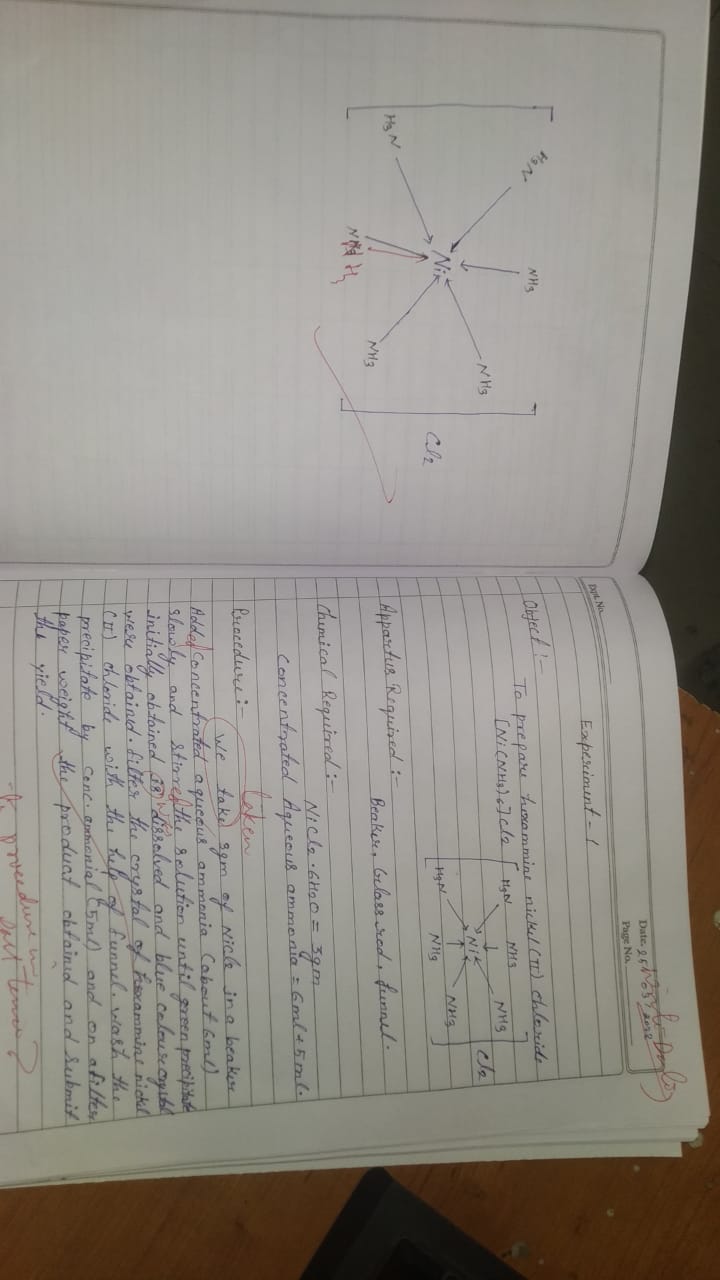 H3N
NH3
NH3
Ni
NH3
NH3
Cl2
Expt. No.
Date.
Page No.
Experiment - 1
Object :-
To prepare hexammine nickel (II) chloride
[Ni(NH3)6]Cl2
H3N
NH3
NH3
Ni
H3N
NH3
NH3
Cl2
Appartus Required :-
Beaker, Glass rod, funnel.
Chemical Required :-
NiCl2.6H2O = 3gm
Concentrated Aqueous ammonia = 6ml + 5ml.
Procedure :-
taken
We take 3gm of Nicl2 in a beaker
Added concentrated aqueous ammonia (about 6ml)
slowly and stirred the solution until green precipitate
initially obtained is dissolved and blue colour crystal
were obtained. filter the crystal of hexammine nickel
(II) chloride with the help of funnel. wash the
precipitate by conc. ammonia (5ml) and on a filter
paper weight the product obtained and submit
the yield.
procedure in